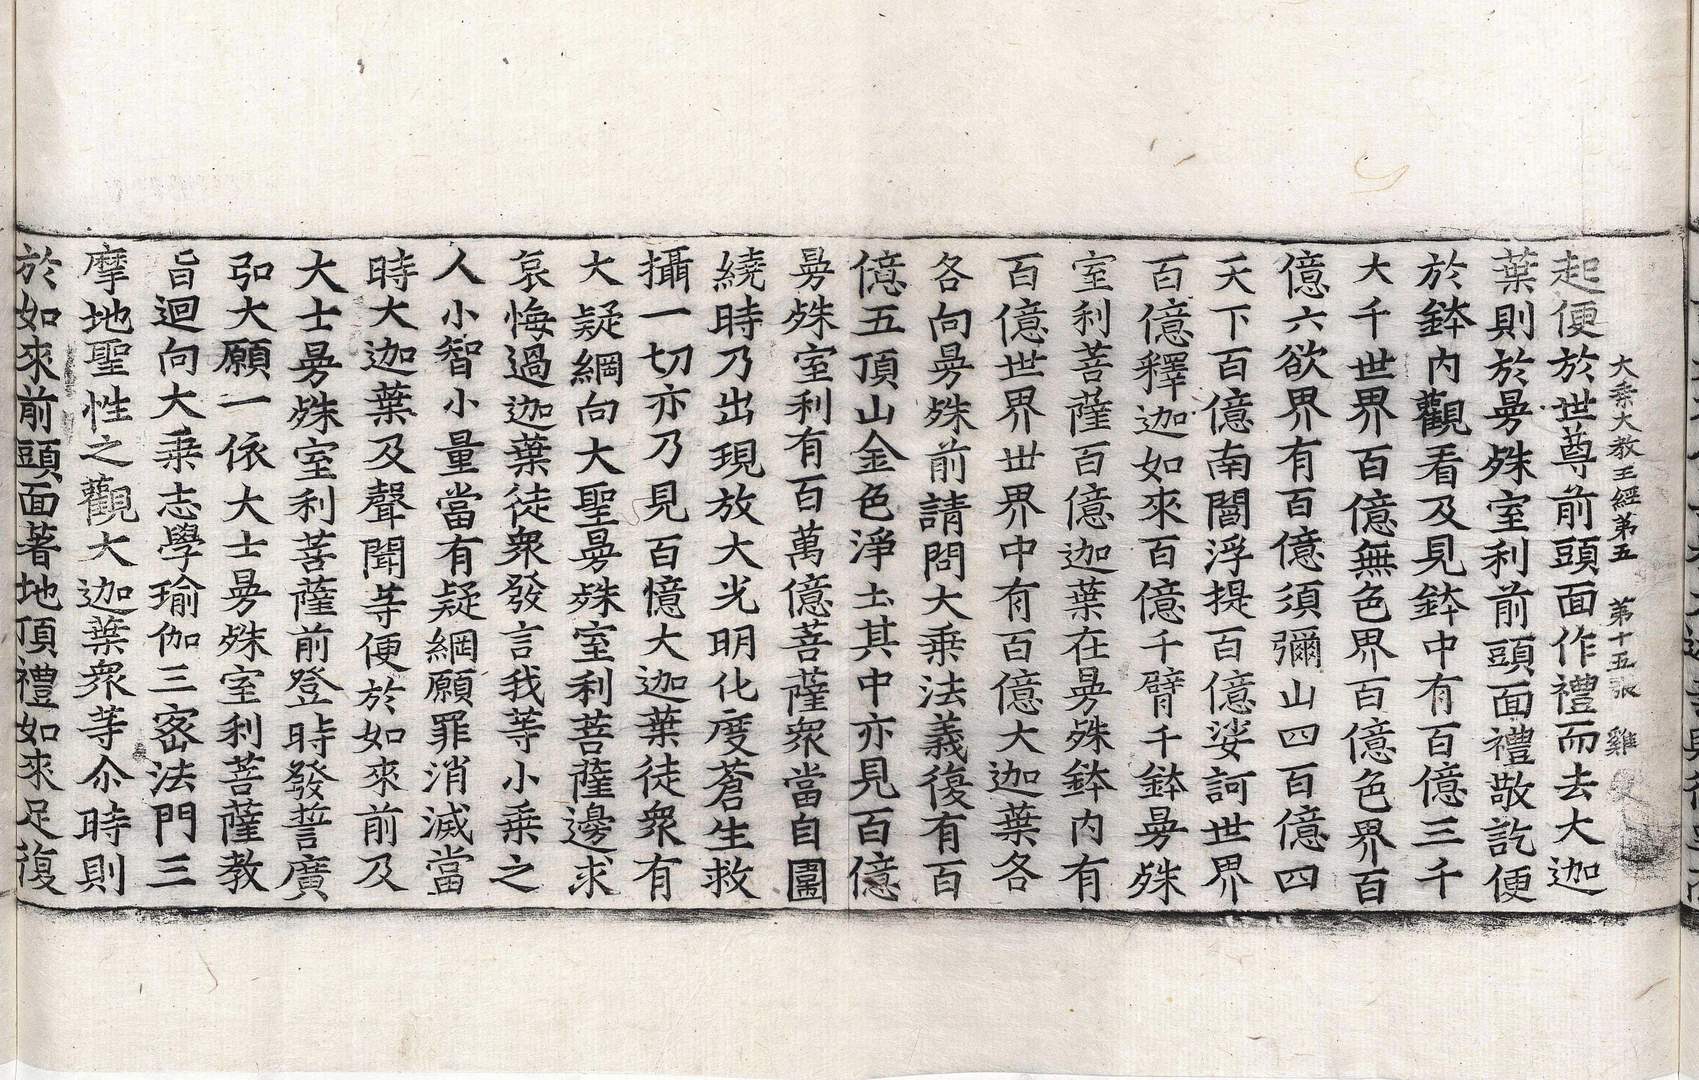 大乘大教王經第五　第十五張　雞
起便於世尊前頭面作禮而去大迦
葉則於曼殊室利前頭面禮敬訖便
於鉢內觀看及見鉢中有百億三千
大千世界百億無色界百億色界百
億六欲界有百億須彌山四百億四
天下百億南閻浮提百億娑訶世界
百億釋迦如來百億千臂千鉢曼殊
室利菩薩百億迦葉在曼殊鉢內有
百億世界世界中有百億大迦葉各
各向曼殊前請問大乘法義復有百
億五頂山金色淨土其中亦見百億
曼殊室利有百萬億菩薩衆當自圍
繞時乃出現放大光明化度蒼生救
攝一切亦乃見百憶大迦葉徒衆有
大疑網向大聖曼殊室利菩薩邊求
哀悔過迦葉徒衆發言我等小乘之
人小智小量當有疑網願罪消滅當
時大迦葉及聲聞等便於如來前及
大士曼殊室利菩薩前登時發誓廣
弘大願一依大士曼殊室利菩薩教
旨迴向大乘志學瑜伽三密法門三
摩地聖性之觀大迦葉衆等尒時則
於如來前頭面著地頂禮如來足復